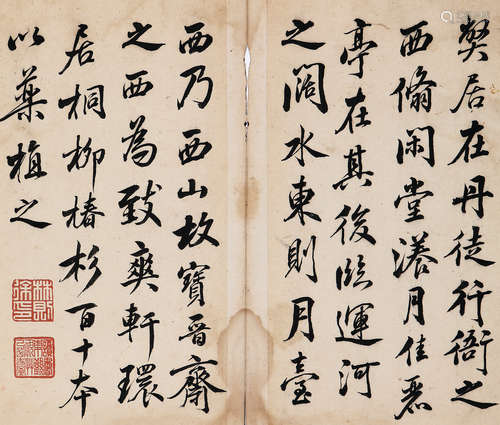 獘居在丹徒行衙之
西翛閑堂漾月佳麗
亭在其後臨運河
之闊水東則月臺
西乃西山故寶晉齋
之西為致爽軒環
居桐柳椿杉百十本
以藥植之
林則徐印